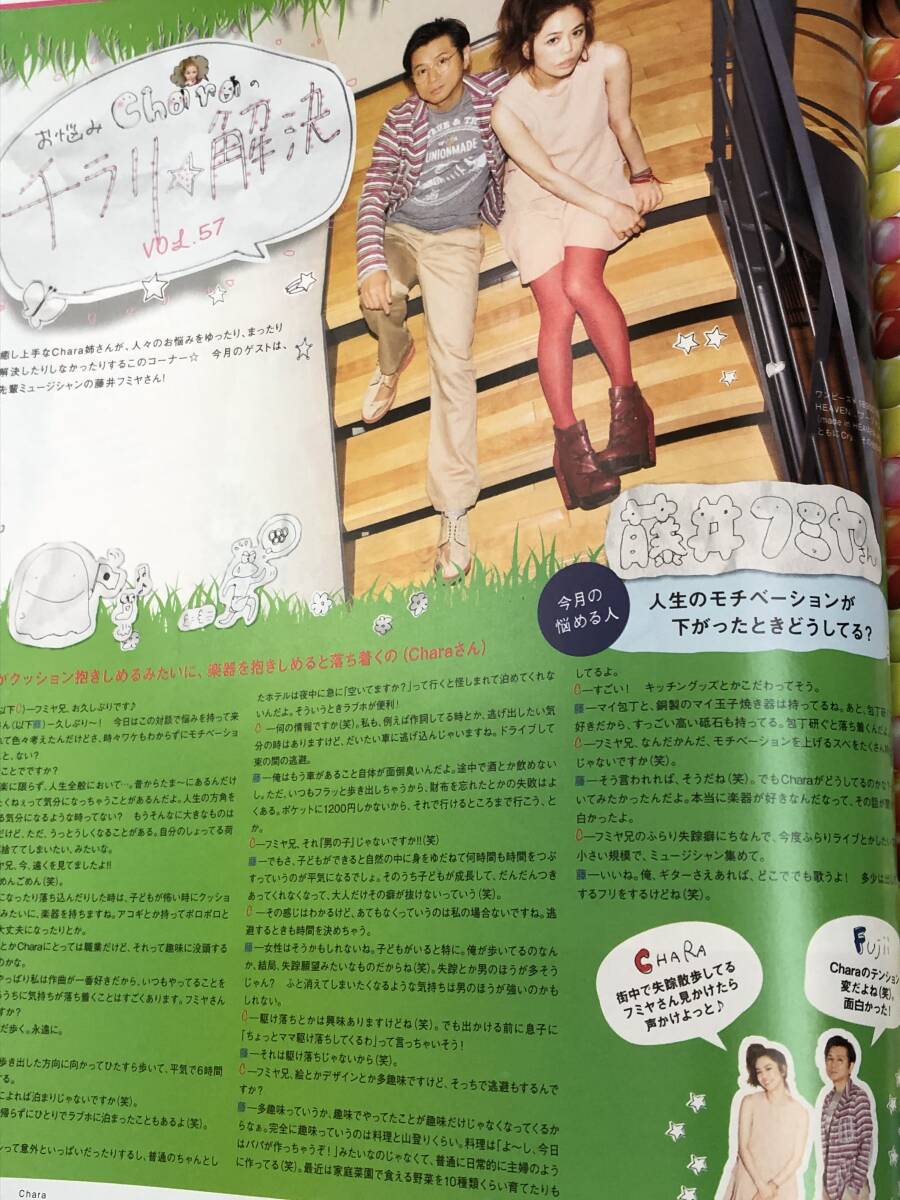 お悩み Charaの
チラリ☆解決
VOL.57
癒し上手なChara姉さんが、人々のお悩みをゆったり、まったり
解決したりしなかったりするこのコーナー☆　今月のゲストは、
先輩ミュージシャンの藤井フミヤさん!
UNIONMADE
ワンピース
HEAVEN
(made in HEAVEN
ともにCry.
藤井フミヤさん
今月の
悩める人
人生のモチベーションが
下がったときどうしてる?
がクッション抱きしめるみたいに、楽器を抱きしめると落ち着くの(Charaさん)
以下C)―フミヤ兄、お久しぶりです♪
さん(以下藤)―久しぶり〜!　今日はこの対談で悩みを持って来
れて色々考えたんだけどさ、時々ワケもわからずにモチベーショ
と、ない?
ことですか?
楽に限らず、人生全般において…。昔からたま〜にあるんだけ
たくねぇって気分になっちゃうことがあるんだよ。人生の方角を
る気分になるような時ってない?　もうそんなに大きなものは
だけど、ただ、うっとうしくなることがある。自分のしょってる荷
捨ててしまいたい、みたいな。
ヤ兄、今、遠くを見てましたよ!!
めんごめん(笑)。
になったり落ち込んだりした時は、子どもが怖い時にクッショ
みたいに、楽器を持ちますね。アコギとか持ってポロポロと
大丈夫になったりとか。
とかCharaにとっては職業だけど、それって趣味に没頭する
のかな。
やっぱり私は作曲が一番好きだから、いつもやってることを
うちに気持ちが落ち着くことはすごくあります。フミヤさん
すか?
だ歩く。永遠に。
歩き出した方向に向かってひたすら歩いて、平気で6時間
る。
によれば泊まりじゃないですか(笑)。
帰らずにひとりでラブホに泊まったこともあるよ(笑)。
って意外といっぱいだったりするし、普通のちゃんとし
たホテルは夜中に急に「空いてますか?」って行くと怪しまれて泊めてくれな
いんだよ。そういうときラブホが便利!
C―何の情報ですか(笑)。私も、例えば作詞してる時とか、逃げ出したい気
分の時はありますけど、だいたい車に逃げ込んじゃいますね。ドライブして
束の間の逃避。
藤―俺はもう車があること自体が面倒臭いんだよ。途中で酒とか飲めない
し。ただ、いつもフラッと歩き出しちゃうから、財布を忘れたとかの失敗はよ
くある。ポケットに1200円しかないから、それで行けるところまで行こう、と
か。
C―フミヤ兄、それ「男の子」じゃないですか!!(笑)
藤―でもさ、子どもができると自然の中に身をゆだねて何時間も時間をつぶ
すっていうのが平気になるでしょ。そのうち子どもが成長して、だんだんつき
あってくれなくなって、大人だけその癖が抜けないっていう(笑)。
C―その感じはわかるけど、あてもなくっていうのは私の場合ないですね。逃
避するときも時間を決めちゃう。
藤―女性はそうかもしれないね。子どもがいると特に。俺が歩いてるのなん
か、結局、失踪願望みたいなものだからね(笑)。失踪とか男のほうが多そう
じゃん?　ふと消えてしまいたくなるような気持ちは男のほうが強いのかも
しれない。
C―駆け落ちとかは興味ありますけどね(笑)。でも出かける前に息子に
「ちょっとママ駆け落ちしてくるわ」って言っちゃいそう!
藤―それは駆け落ちじゃないから(笑)。
C―フミヤ兄、絵とかデザインとか多趣味ですけど、そっちで逃避もするんで
すか?
藤―多趣味っていうか、趣味でやってたことが趣味だけじゃなくなってくるか
らなぁ。完全に趣味っていうのは料理と山登りくらい。料理は「よ〜し、今日
はパパが作っちゃうぞ!」みたいなのじゃなくて、普通に日常的に主婦のよう
に作ってる(笑)。最近は家庭菜園で食える野菜を10種類くらい育てたりも
してるよ。
C―すごい!　キッチングッズとかこだわってそう。
藤―マイ包丁と、銅製のマイ玉子焼き器は持ってるね。あと、包丁研
好きだから、すっごい高い砥石も持ってる。包丁研ぐと落ち着くんだよ
C―フミヤ兄、なんだかんだ、モチベーションを上げるスベをたくさん
じゃないですか(笑)。
藤―そう言われれば、そうだね(笑)。でもCharaがどうしてるのかな
いてみたかったんだよ。本当に楽器が好きなんだなって、その話が
白かったよ。
C―フミヤ兄のふらり失踪癖にちなんで、今度ふらりライブとかしたい
小さい規模で、ミュージシャン集めて。
藤―いいね。俺、ギターさえあれば、どこででも歌うよ!　多少は
するフリをするけどね(笑)。
CHARA
街中で失踪散歩してる
フミヤさん見かけたら
声かけよっと♪
Fujii
Charaのテンション
変だよね(笑)。
面白かった!
Chara